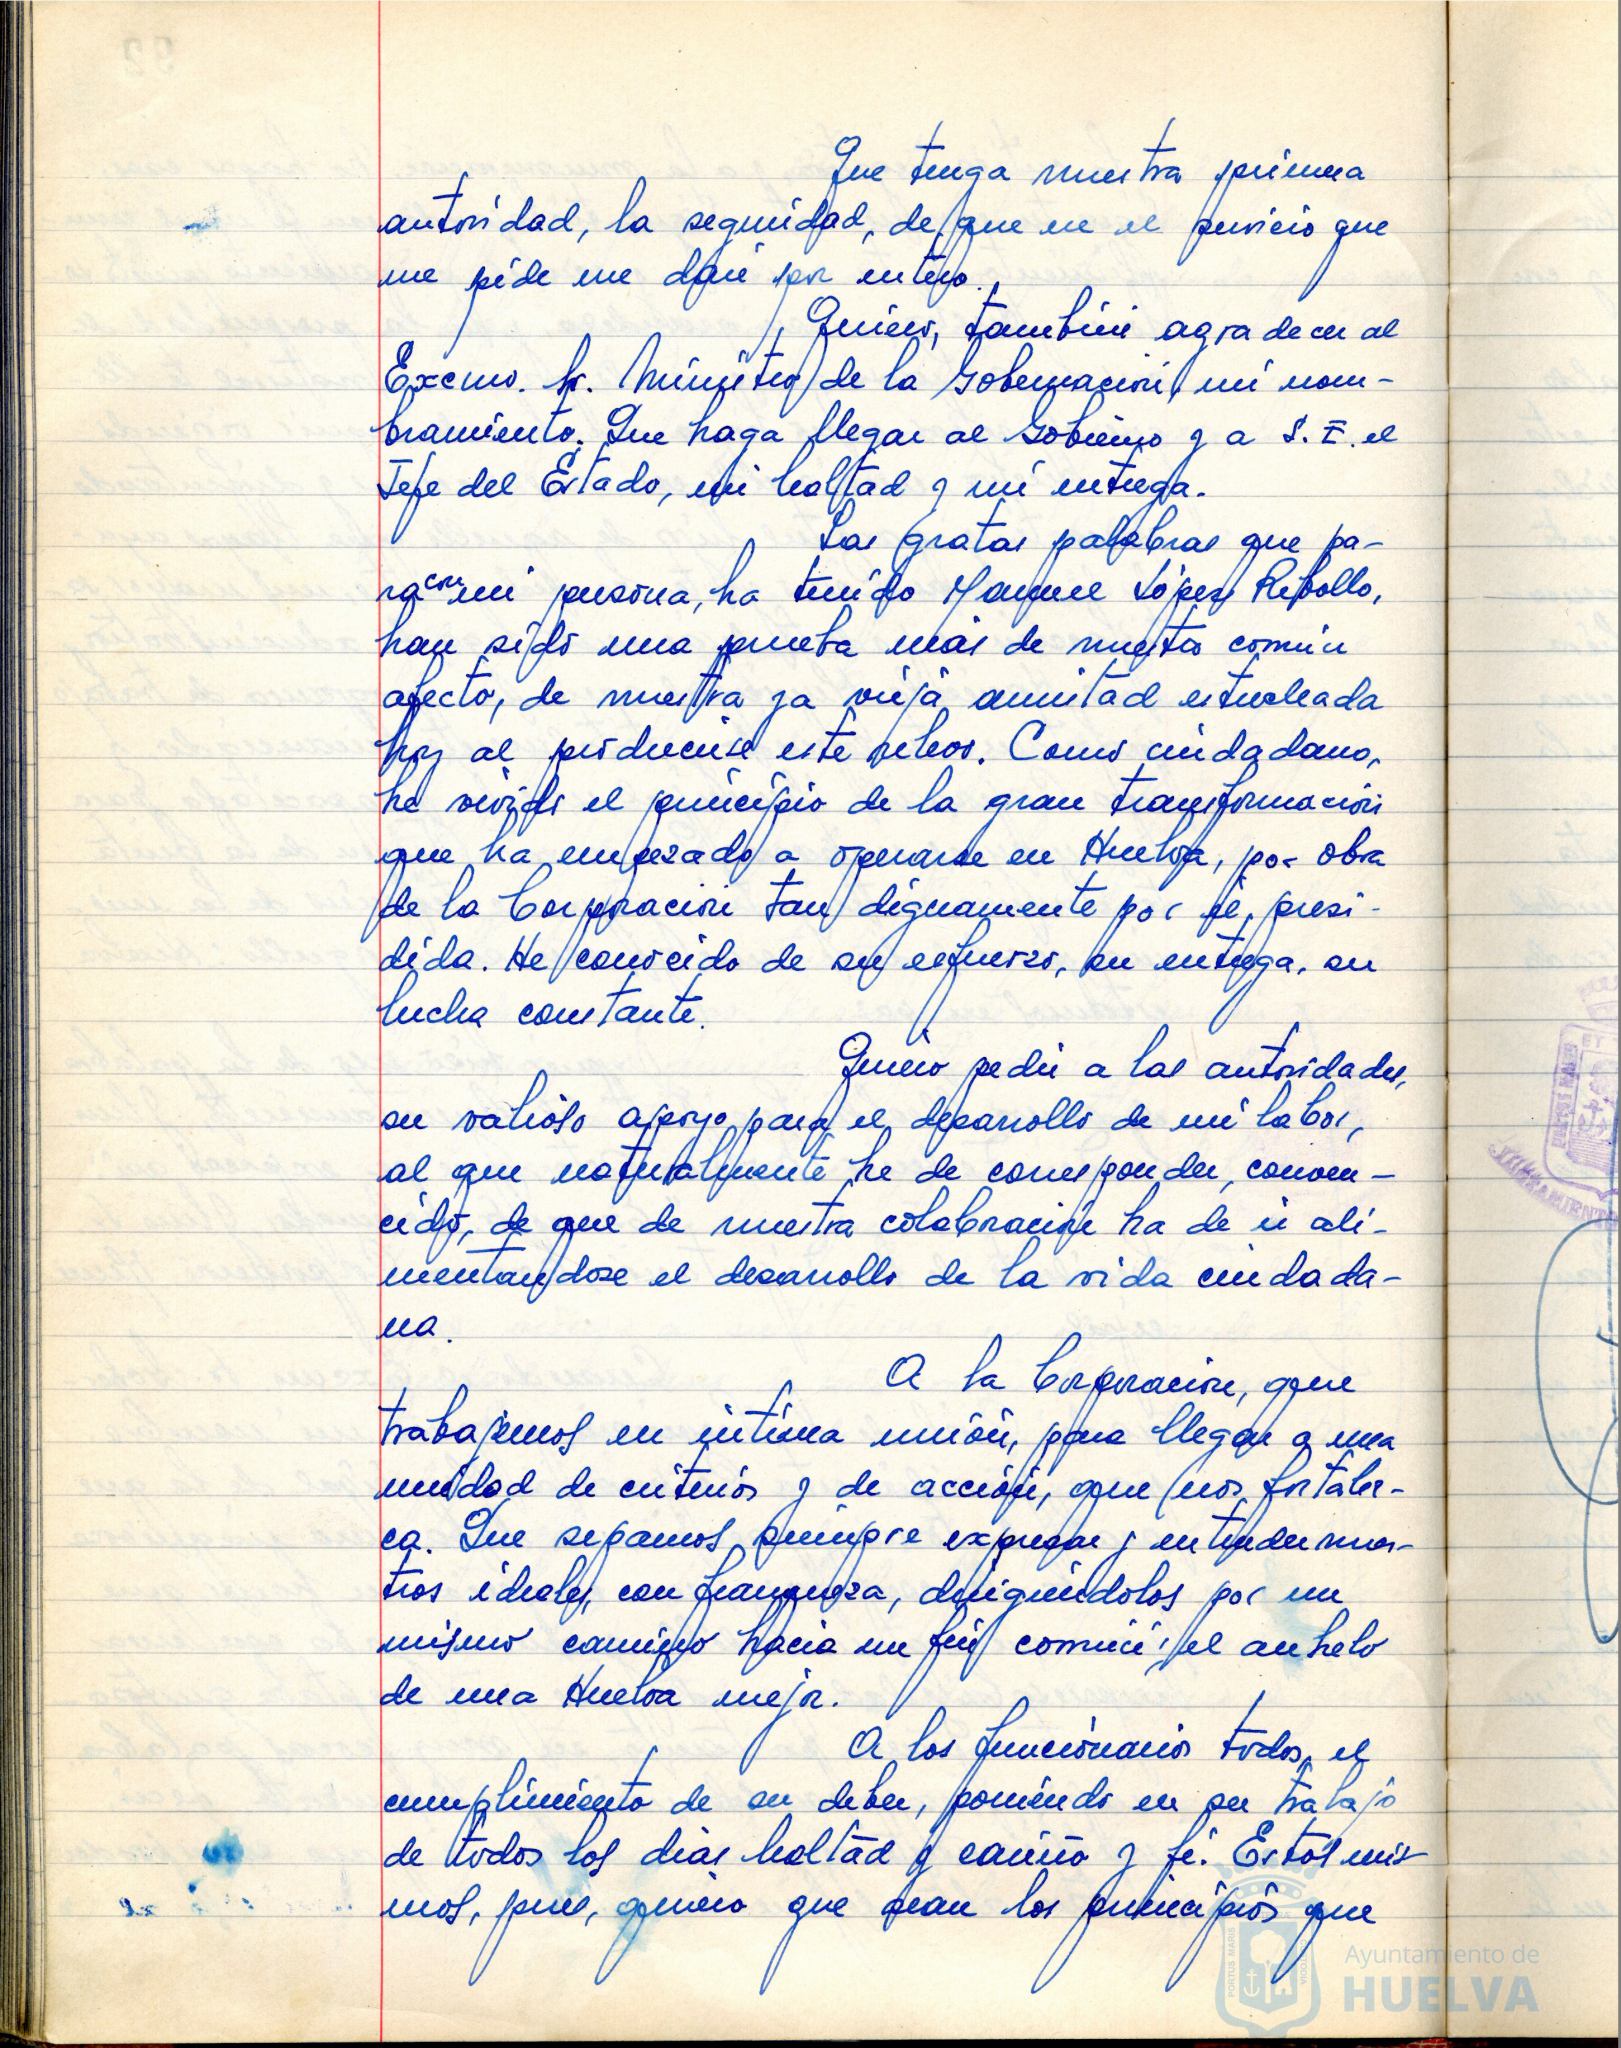 Que tenga nuestra primera
autoridad, la seguridad, de que en el servicio que
me pide me daré por entero.
Quiero, también agradecer al
Excmo. Sr. Ministro de la Gobernación, mi nom-
bramiento. Que haga llegar al Gobierno y a S. E. el
Jefe del Estado, mi lealtad y mi entrega.
Las gratas palabras que pa-
ra con mi persona, ha tenido Manuel López Rebollo,
han sido una prueba más de nuestro común
afecto, de nuestra ya vieja amistad estrechada
hoy al producirse este relevo. Como ciudadano,
he vivido el principio de la gran transformación
que ha empezado a operarse en Huelva, por obra
de la Corporación tan dignamente por él, presi-
dida. He conocido de su esfuerzo, su entrega, su
lucha constante.
Quiero pedir a las autoridades,
su valioso apoyo para el desarrollo de mi labor,
al que naturalmente he de corresponder, conven-
cido, de que de nuestra colaboración ha de ir ali-
mentándose el desarrollo de la vida ciudada-
na.
A la Corporación, que
trabajemos en íntima unión, para llegar a una
unidad de criterios y de acción, que nos fortalez-
ca. Que sepamos siempre expresar y entender nues-
tros ideales, con franqueza, dirigiéndolos por un
mismo camino hacia un fin común: el anhelo
de una Huelva mejor.
A los funcionarios todos, el
cumplimiento de su deber, poniendo en su trabajo
de todos los días lealtad y cariño y fé. Estos mis-
mos, pues, quiero que sean los principios que
PORTUS MARIS
CUSTODIA
Ayuntamiento de
HUELVA